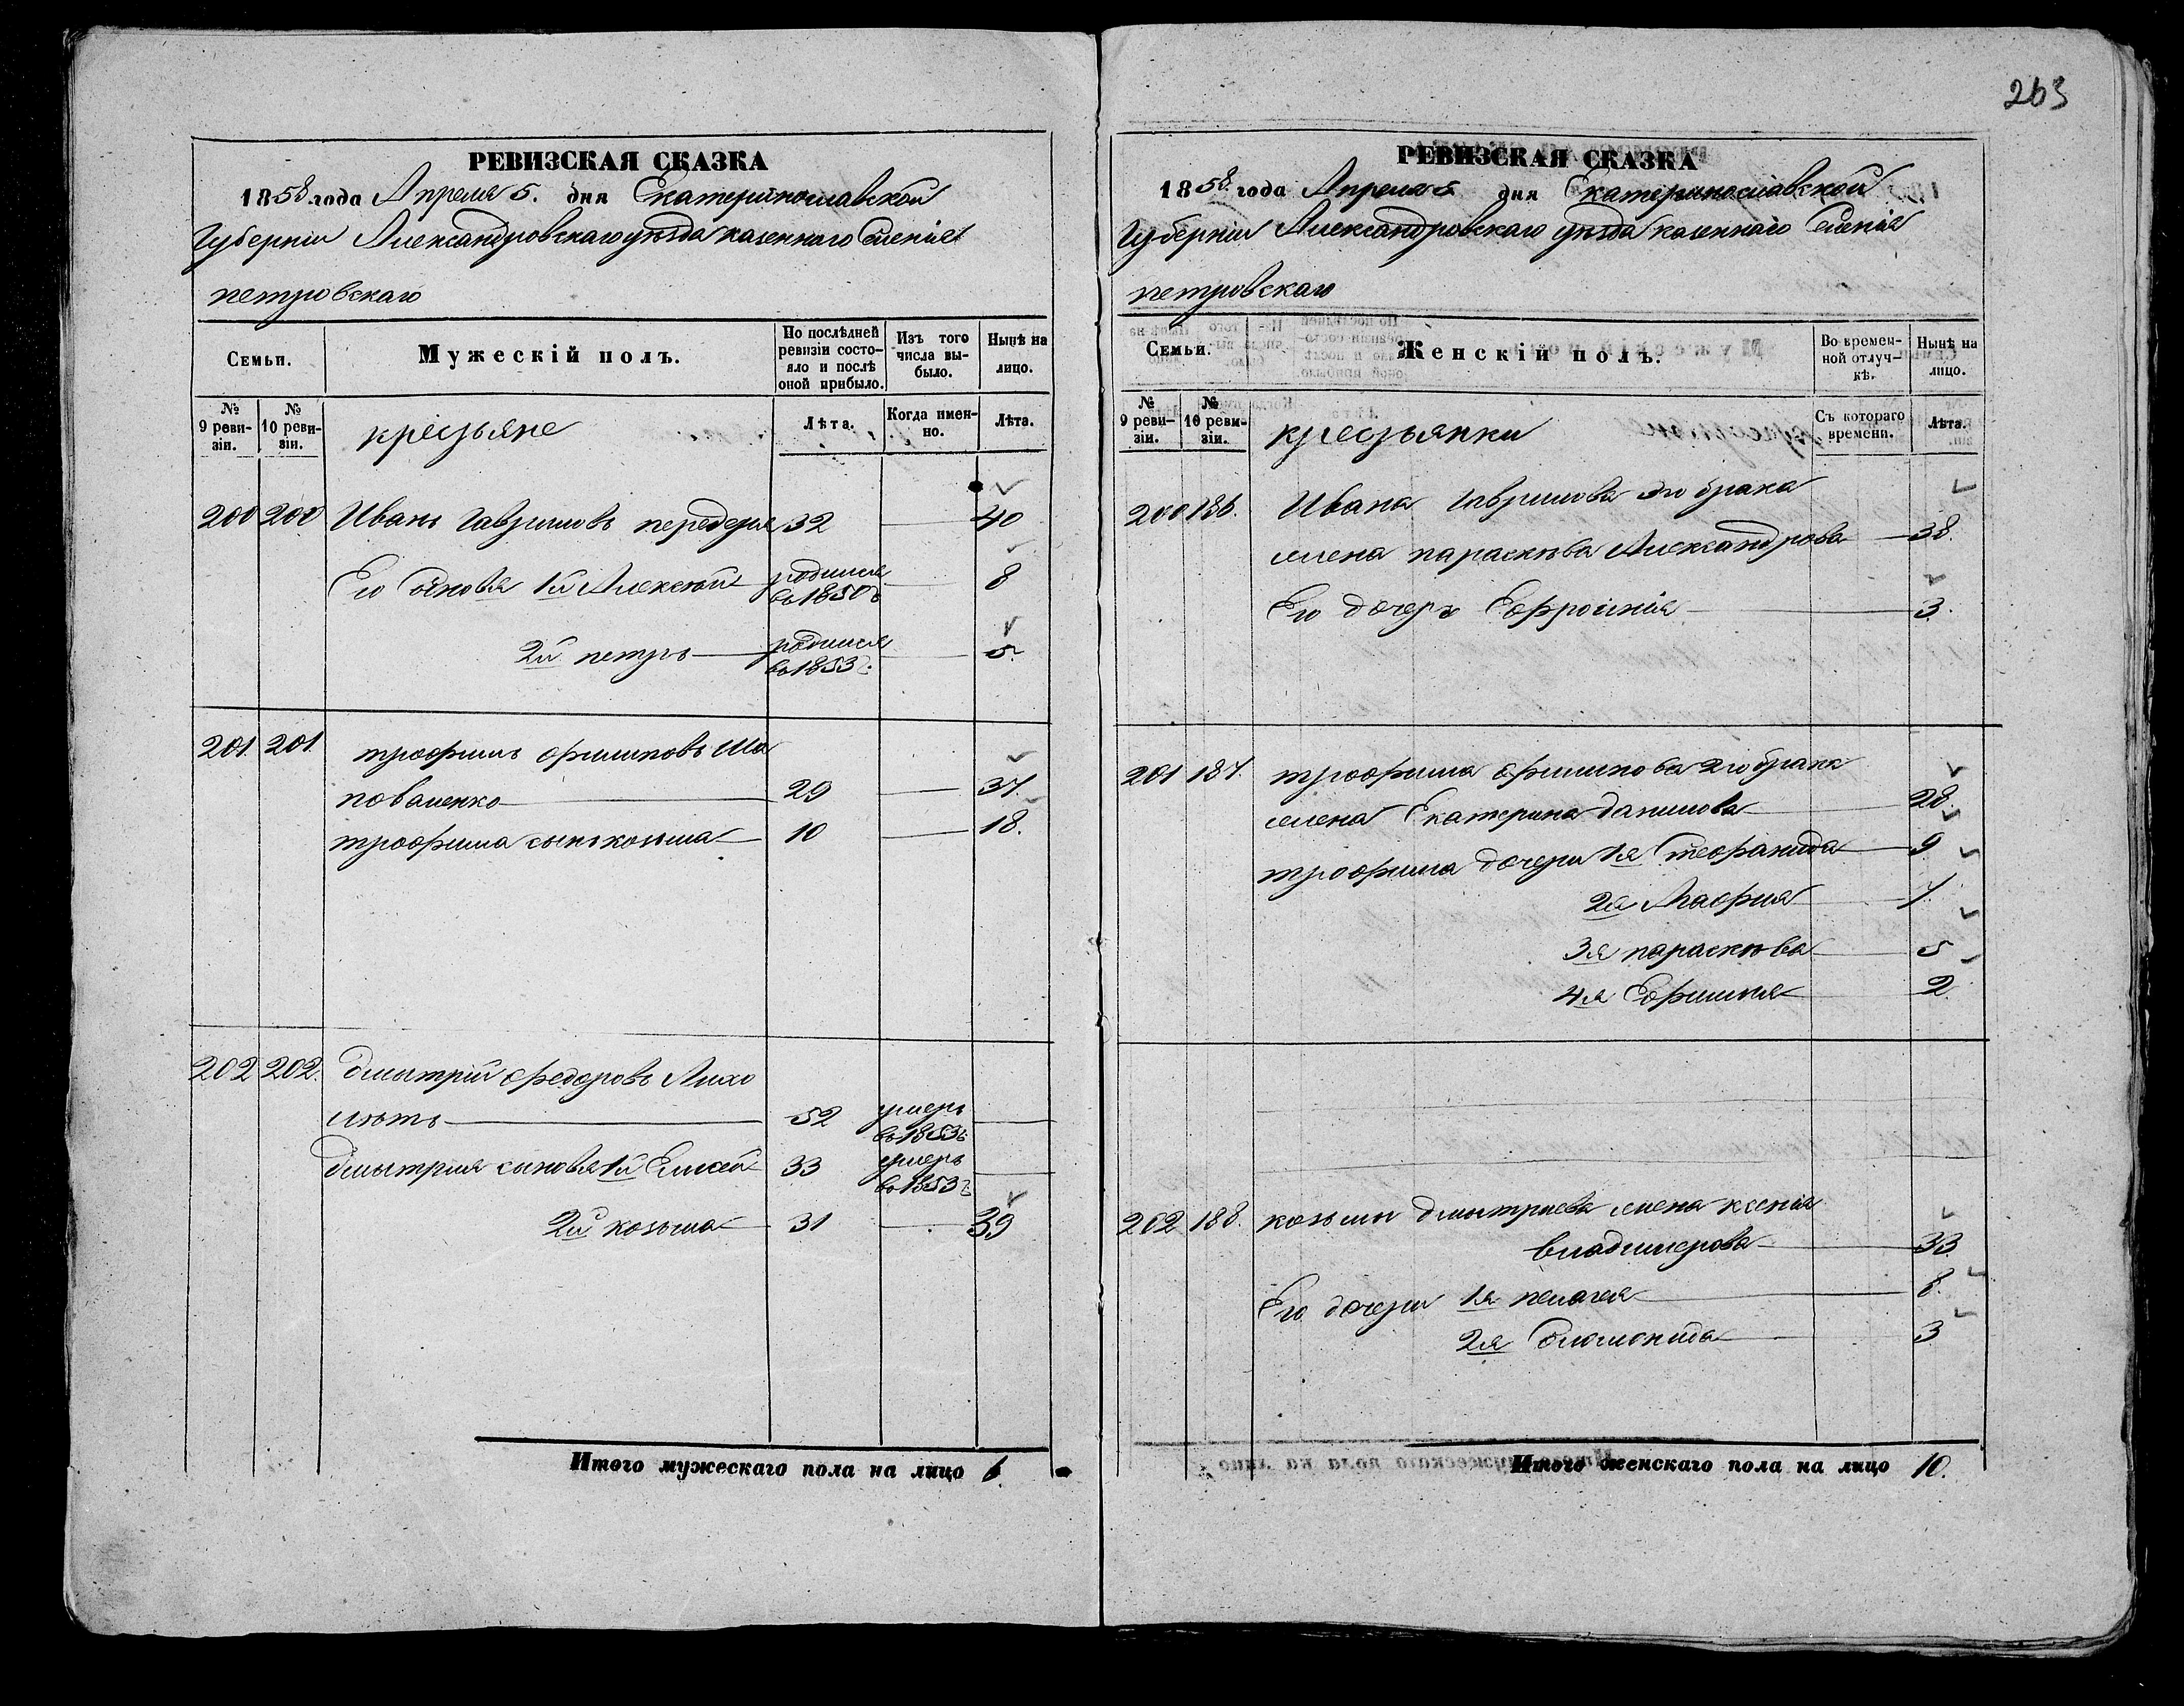 263
РЕВИЗСКАЯ СКАЗКА
1858 года Апреля 5. дня Екатеринославской
Губерніи Александровскаго уѣзда казеннаго Селенія
петровскаго
Семьи.
Мужескій полъ.
По послѣдней ревизіи состо-
яло и послѣ оной прибыло.
Изъ того числа вы-
было.
Нынѣ на лицо.
№ 9 реви-
зіи.
№ 10 реви-
зіи.
крестьяне
Лѣта.
Когда имен-
но.
Лѣта.
200 200 Иванъ Гаврииловъ передерія 32 40
Его Сыновья 1й Алексѣй родился въ 1850 г. 8
2й петръ родился въ 1853 г. 5.
201. 201. трофимъ филиповъ Ша
поваленко 29 37.
трофима сынъ козьма 10 18.
202 202. дмытрій федоровъ Лихо
лѣтъ 52 умеръ въ 1853 г.
дмытрія сыновья 1й Елисей 33 умеръ въ 1853 г.
2й козьма 31 39
Итого мужескаго пола на лицо 6.
РЕВИЗСКАЯ СКАЗКА
1858. года Апреля 5 дня Екатеринославской
Губерніи Александровскаго уѣзда казеннаго Селенія
петровскаго
Семьи.
Женскій полъ.
Во времен-
ной отлуч-
кѣ.
Нынѣ на лицо.
№ 9 реви-
зіи.
№ 10 реви-
зіи.
крестьянки
Съ котораго времени.
Лѣта.
200 186. Ивана Гаврилова 2го брака
жена параскѣва Александрова 38.
Его дочерь Ефросинія 3.
201 187. трофима филипова 2го брака
жена Екатерина данилова 28.
трофима дочери 1я Стефанида 9
2я Марфия 7.
3я параскѣва 5
4я Ефимия 2.
202 188. козьмы дмытриева жена ксенія
владимерова 33.
Его дочери 1я пелагея 8.
2я Соломонида 3
Итого женскаго пола на лицо 10.